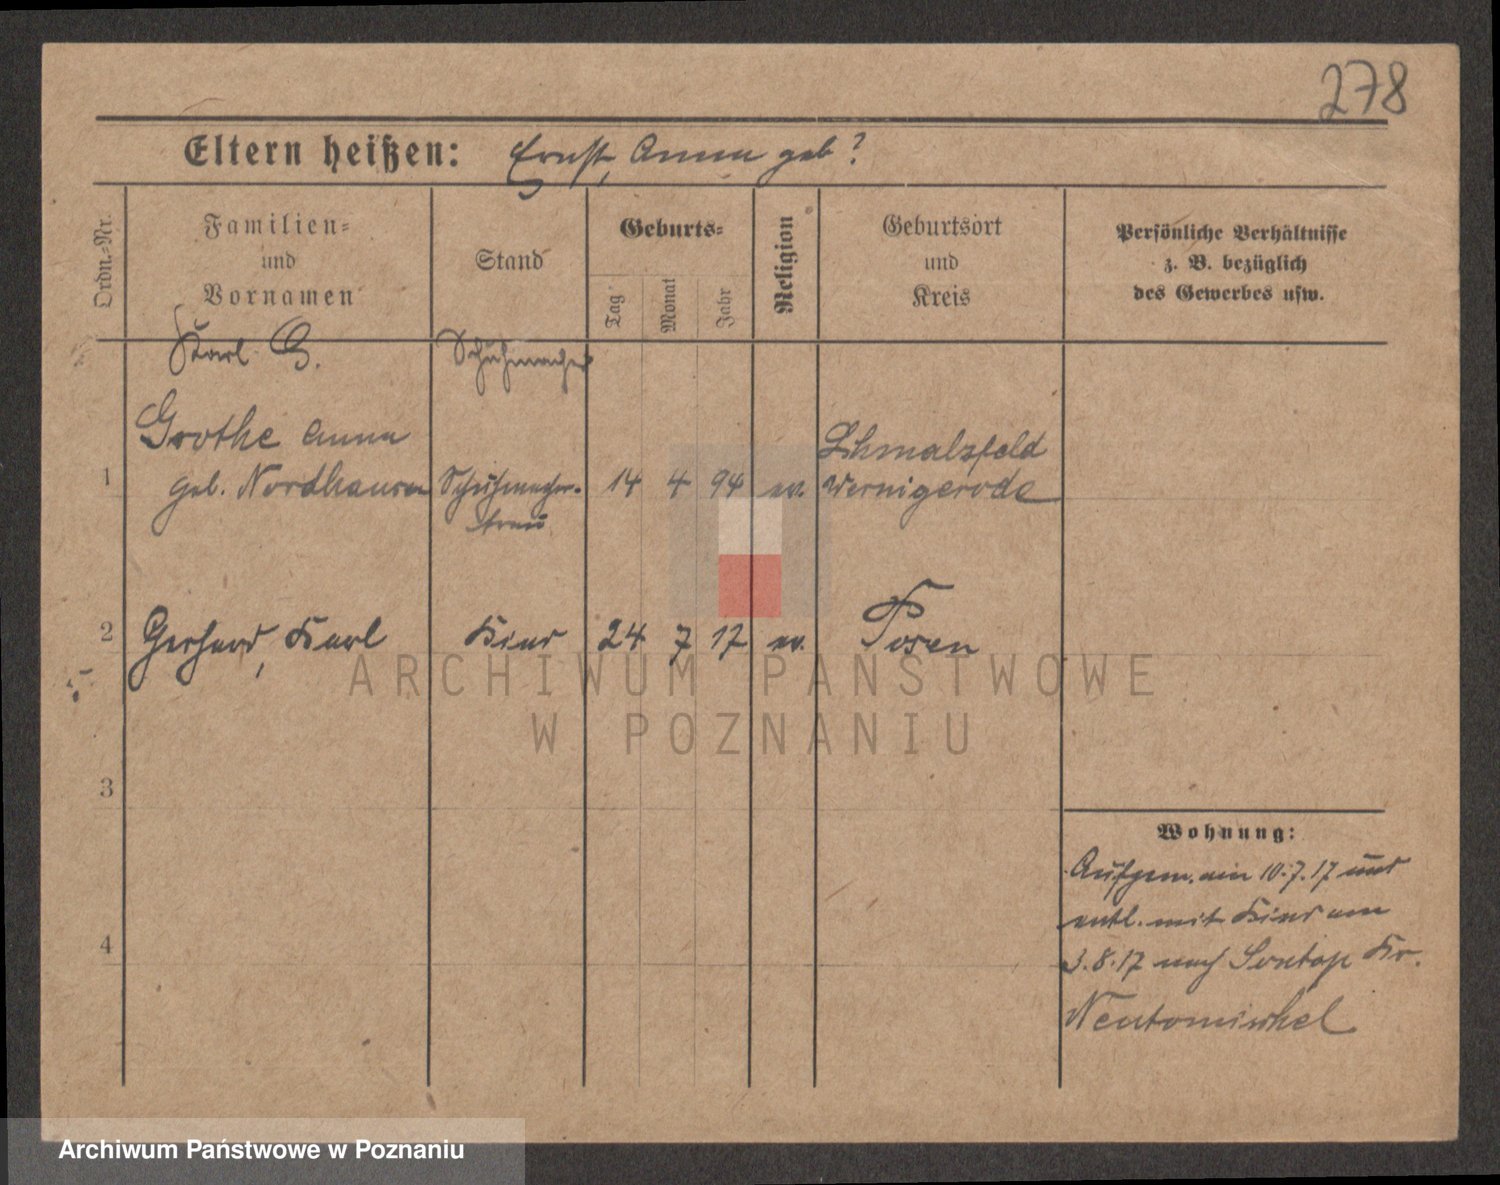 278
Eltern heißen: Ernst, Anna geb?
Ordn.-Nr.
Familien-
und
Vornamen
Stand
Geburts-
Tag
Monat
Jahr
Religion
Geburtsort
und
Kreis
Persönliche Verhältnisse
z. B. bezüglich
des Gewerbes usw.
Karl G. Schuhmacher
Grothe Anna Schmalzfeld
1 geb. Nordhausen Schuhmacher- 14 4 94 ev. Wernigerode
frau
2 Gerhard, Karl Kind 24 7 17 ev. Posen
ARCHIWUM PAŃSTWOWE
W POZNANIU
3
4
Wohnung:
Aufgen. am 10.7.17 und
entl. mit Kind am
3.8.17 nach Sontop Kr.
Neutomischel
Archiwum Państwowe w Poznaniu